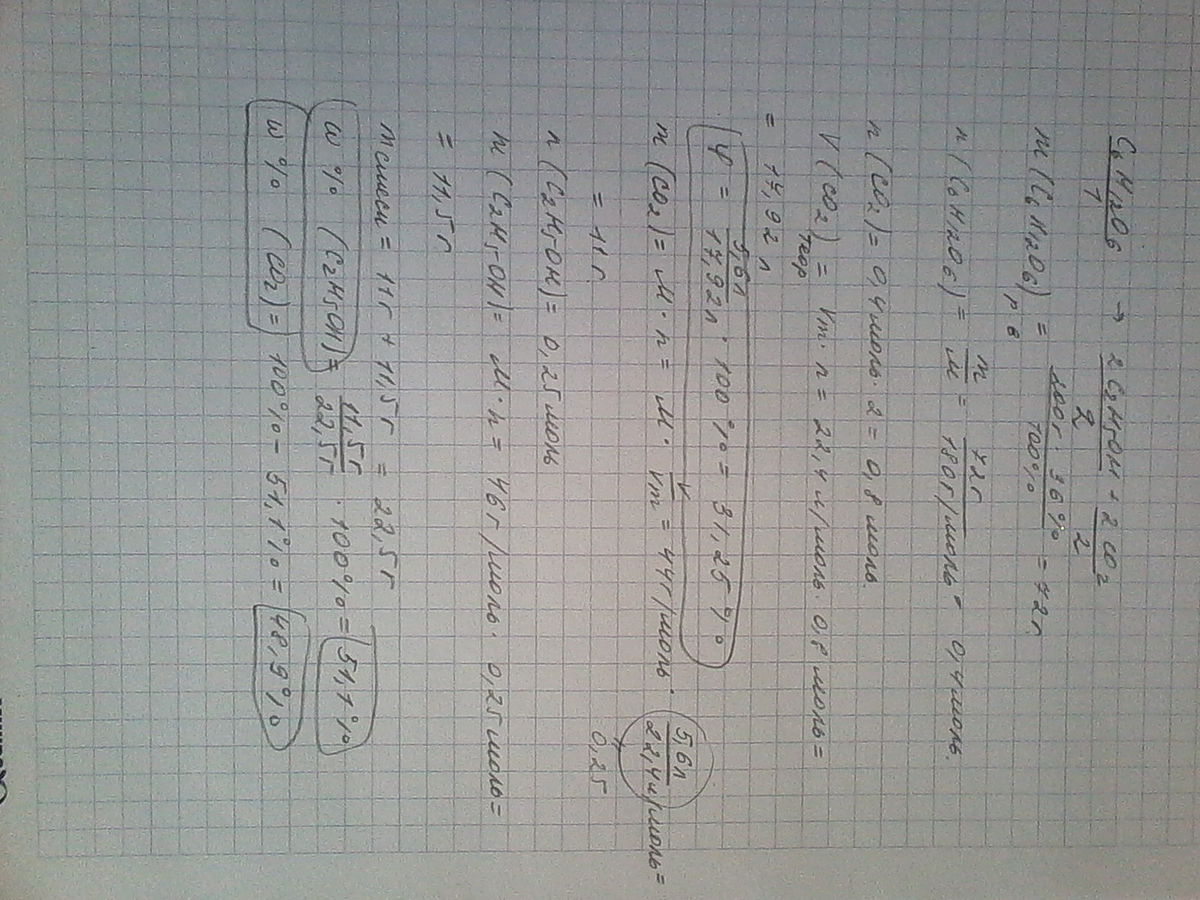 C₆H₁₂O₆ → 2C₂H₅OH + 2CO₂
1 2 2
m(C₆H₁₂O₆) р.в = 200г · 36% / 100% = 72г
n(C₆H₁₂O₆) = m/M = 72г / 180г/моль = 0,4моль.
n(CO₂) = 0,4моль · 2 = 0,8 моль.
V(CO₂) теор = Vm · n = 22,4 л/моль · 0,8 моль =
= 17,92 л
φ = 5,6л / 17,92л · 100% = 31,25%
m(CO₂) = M · n = M · V/Vm = 44г/моль · 5,6л / 22,4л/моль =
0,25
= 11г.
n(C₂H₅OH) = 0,25моль
m(C₂H₅OH) = M · n = 46г/моль · 0,25моль =
= 11,5г
m смеси = 11г + 11,5г = 22,5г
ω% (C₂H₅OH) = 11,5г / 22,5г · 100% = 51,1%
ω% (CO₂) = 100% - 51,1% = 48,9%